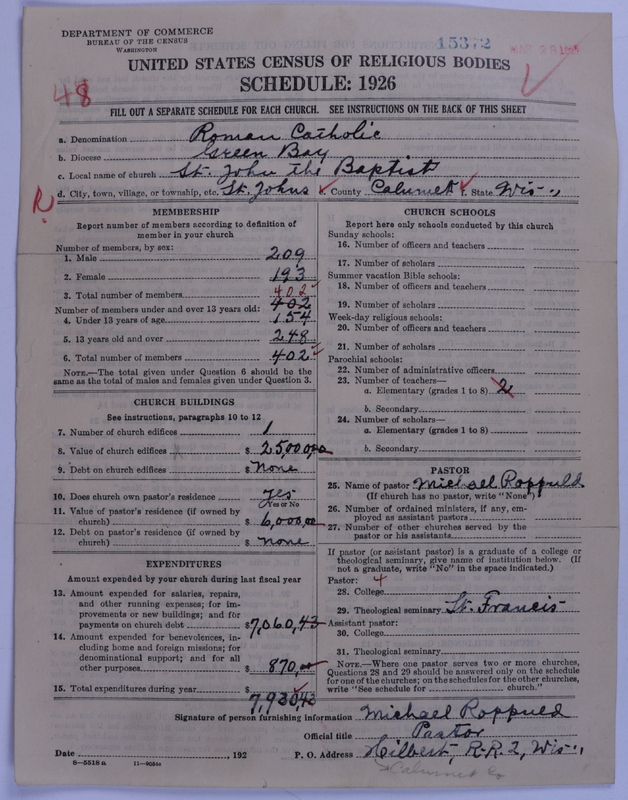 DEPARTMENT OF COMMERCE
BUREAU OF THE CENSUS
WASHINGTON
15372
UNITED STATES CENSUS OF RELIGIOUS BODIES
SCHEDULE: 1926
48
FILL OUT A SEPARATE SCHEDULE FOR EACH CHURCH. SEE INSTRUCTIONS ON THE BACK OF THIS SHEET
a. Denomination Roman Catholic
b. Diocese Green Bay
c. Local name of church St. John the Baptist
d. City, town, village, or township, etc. St. Johns e. County Calumet f. State Wis.
R
MEMBERSHIP
Report number of members according to definition of
member in your church
Number of members, by sex:
1. Male 209
2. Female 193
402
3. Total number of members 402
Number of members under and over 13 years old:
4. Under 13 years of age 154
5. 13 years old and over 248
6. Total number of members 402
NOTE.—The total given under Question 6 should be the
same as the total of males and females given under Question 3.
CHURCH BUILDINGS
See instructions, paragraphs 10 to 12
7. Number of church edifices 1
8. Value of church edifices $ 25,000,00
9. Debt on church edifices $ None
10. Does church own pastor's residence yes
(Yes or No)
11. Value of pastor's residence (if owned by
church) $ 6,000,00
12. Debt on pastor's residence (if owned by
church) $ none
EXPENDITURES
Amount expended by your church during last fiscal year
13. Amount expended for salaries, repairs,
and other running expenses; for im-
provements or new buildings; and for
payments on church debt $7,060,43
14. Amount expended for benevolences, in-
cluding home and foreign missions; for
denominational support; and for all
other purposes $ 870,00
15. Total expenditures during year $ 7,930,43
CHURCH SCHOOLS
Report here only schools conducted by this church
Sunday schools:
16. Number of officers and teachers
17. Number of scholars
Summer vacation Bible schools:
18. Number of officers and teachers
19. Number of scholars
Week-day religious schools:
20. Number of officers and teachers
21. Number of scholars
Parochial schools:
22. Number of administrative officers
23. Number of teachers—
a. Elementary (grades 1 to 8) 2
b. Secondary
24. Number of scholars—
a. Elementary (grades 1 to 8)
b. Secondary
PASTOR
25. Name of pastor Michael Roppuld
(If church has no pastor, write "None")
26. Number of ordained ministers, if any, em-
ployed as assistant pastors
27. Number of other churches served by the
pastor or his assistants
If pastor (or assistant pastor) is a graduate of a college or
theological seminary, give name of institution below. (If
not a graduate, write "No" in the space indicated.)
Pastor: 4
28. College
29. Theological seminary St. Francis
Assistant pastor:
30. College
31. Theological seminary
NOTE.—Where one pastor serves two or more churches,
Questions 28 and 29 should be answered only on the schedule
for one of the churches; on the schedules for the other churches,
write "See schedule for church."
Signature of person furnishing information Michael Roppuld
Official title Pastor
Date , 192 P. O. Address Hilbert, R.R. 2, Wis.
8—5518a 11—9054a
Calumet Co